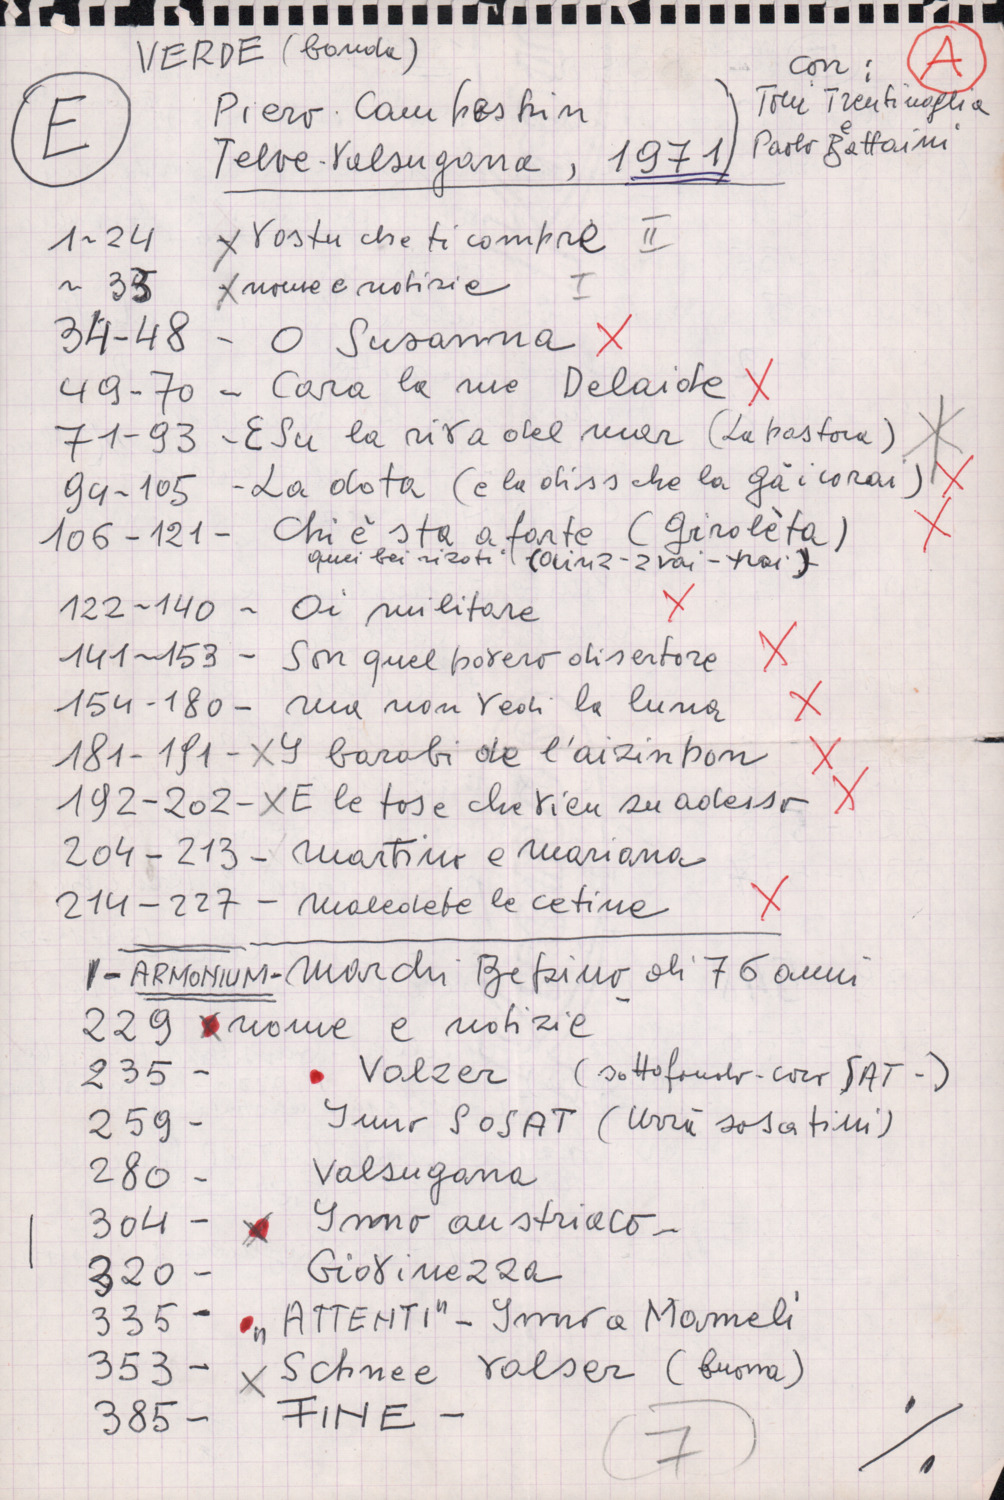 VERDE (banda)
A
con:
E
Piero Campestrin
Toni Trentinaglia
e
Telve-Valsugana, 1971)
Paolo Battaini
1~24 x Vostu che ti compre II
~ 35 x nome e notizie I
34-48 - O Susanna X
49-70 - Cara la me Delaide X
71-93 - E Su la riva del mar (La pastora)
94~105 - La dota (e la diss che la gà i corai) X
106-121- Chi è sta a forte (Girolèta) X
quei bei rizoti
122~140 ~ Oi militare X
141~153 - Son quel povero disertore X
154-180- ma non vedi la luna X
181-191- X I barabi de l'aizinpon X
192-202- X E le tose che vien su adesso X
204-213- Martino e Mariana
214-227 - maledete le cetine X
1- ARMONIUM- Marchi Bepino di 76 anni
229 x nome e notizie
235 - Valzer (sottofondo-coro SAT-)
259 - Inno SOSAT (Urrà sosatini)
280 - Valsugana
304 - x Inno austriaco-
320 - Giovinezza
335 - "ATTENTI" - Inno a Mameli
353 - x Schnee valser (buona)
385 - FINE -
7
./.